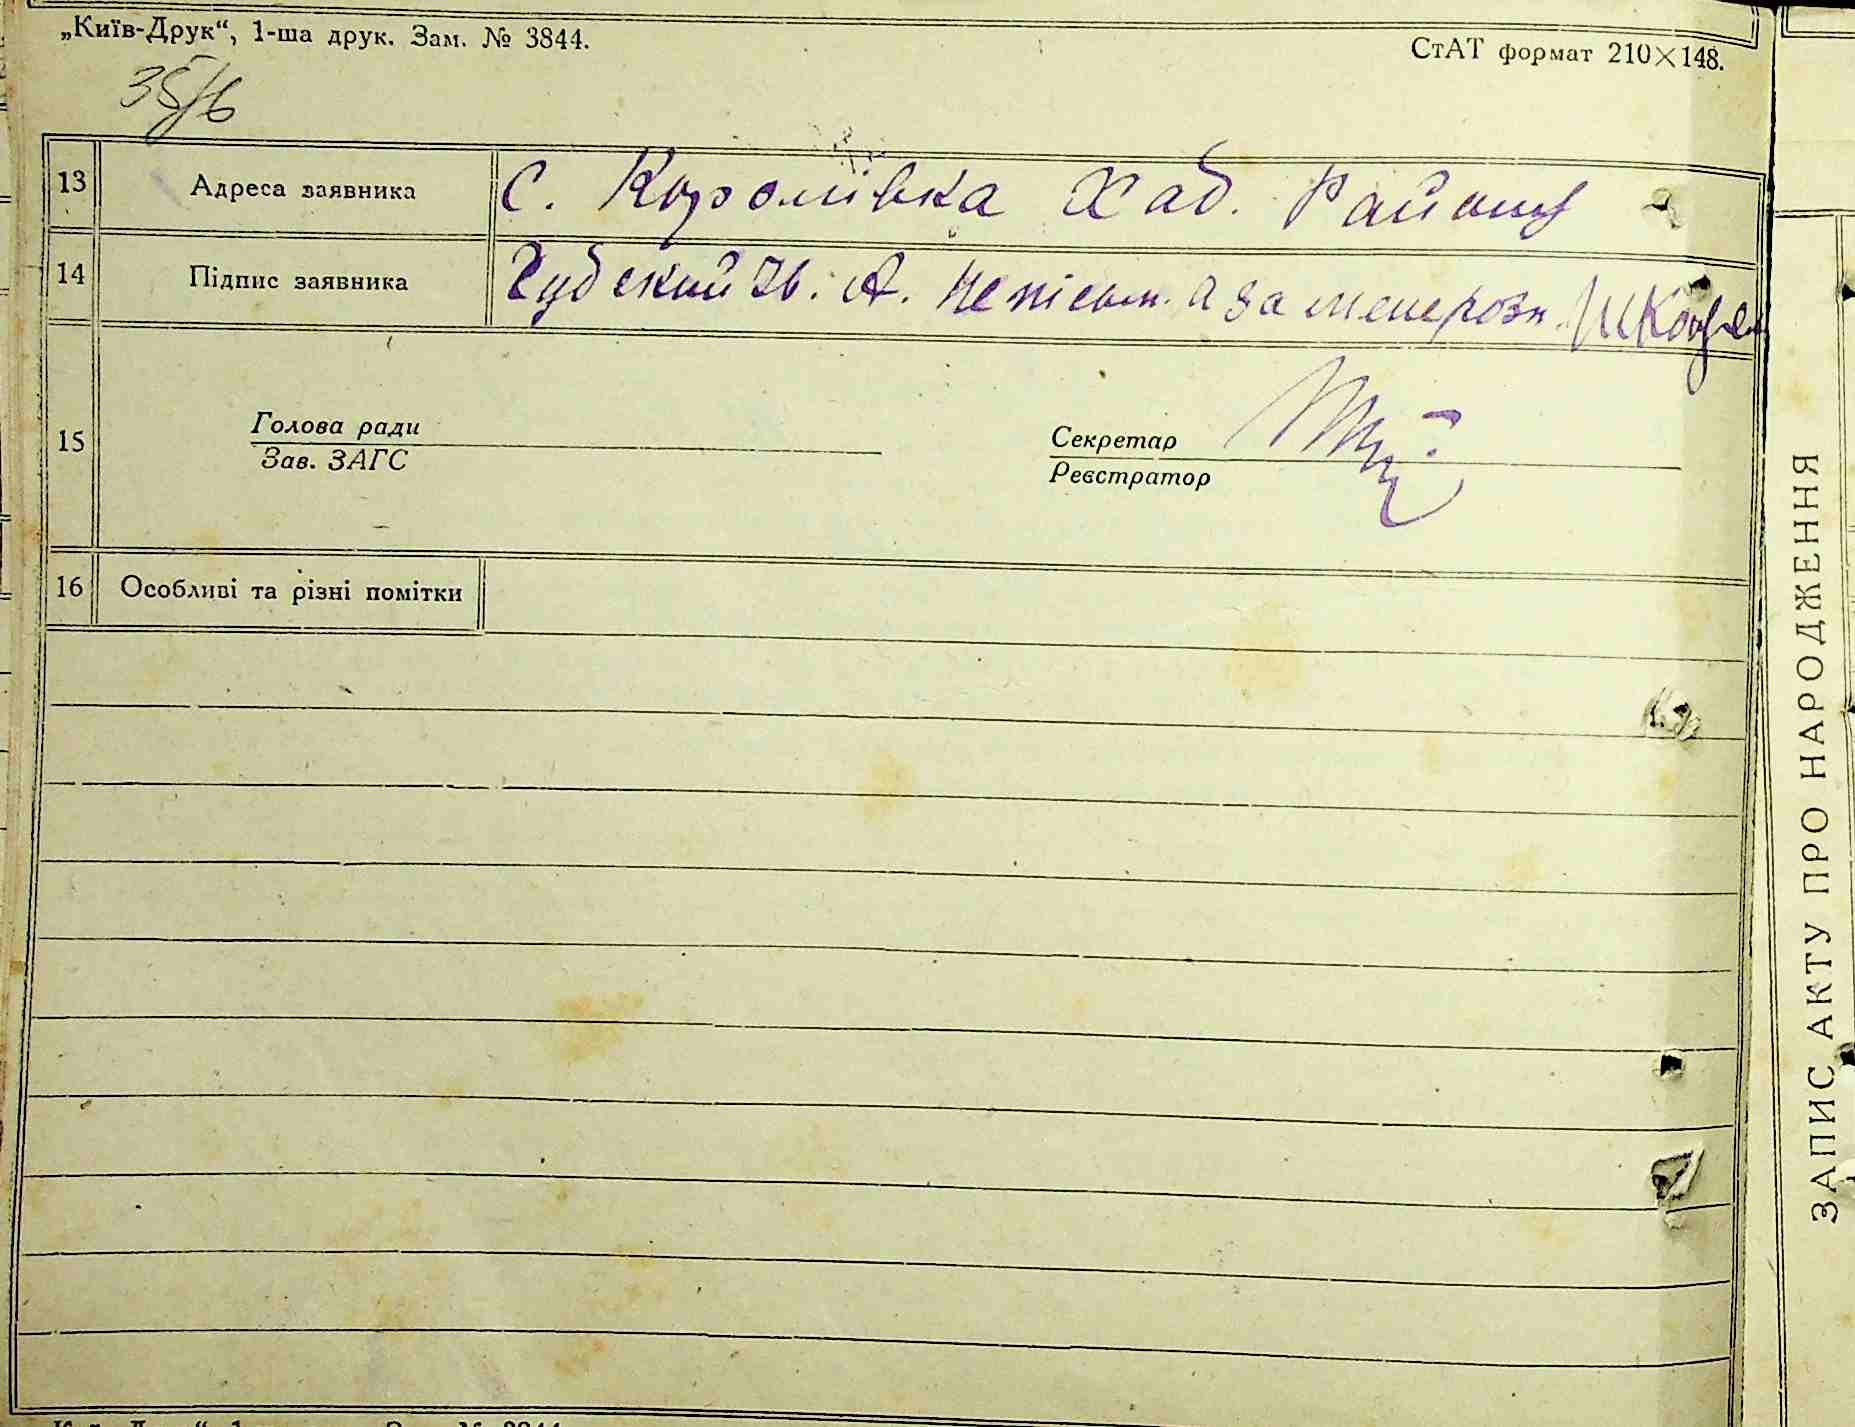 „Київ-Друк“, 1-ша друк. Зам. № 3844.
СтАТ формат 210×148.
35/6
13 Адреса заявника С. Королівка Хаб. Району
14 Підпис заявника А. а за мене розп.
Голова ради
Зав. ЗАГС
15
Секретар
Реєстратор
16 Особливі та різні помітки
ЗАПИС АКТУ ПРО НАРОДЖЕННЯ